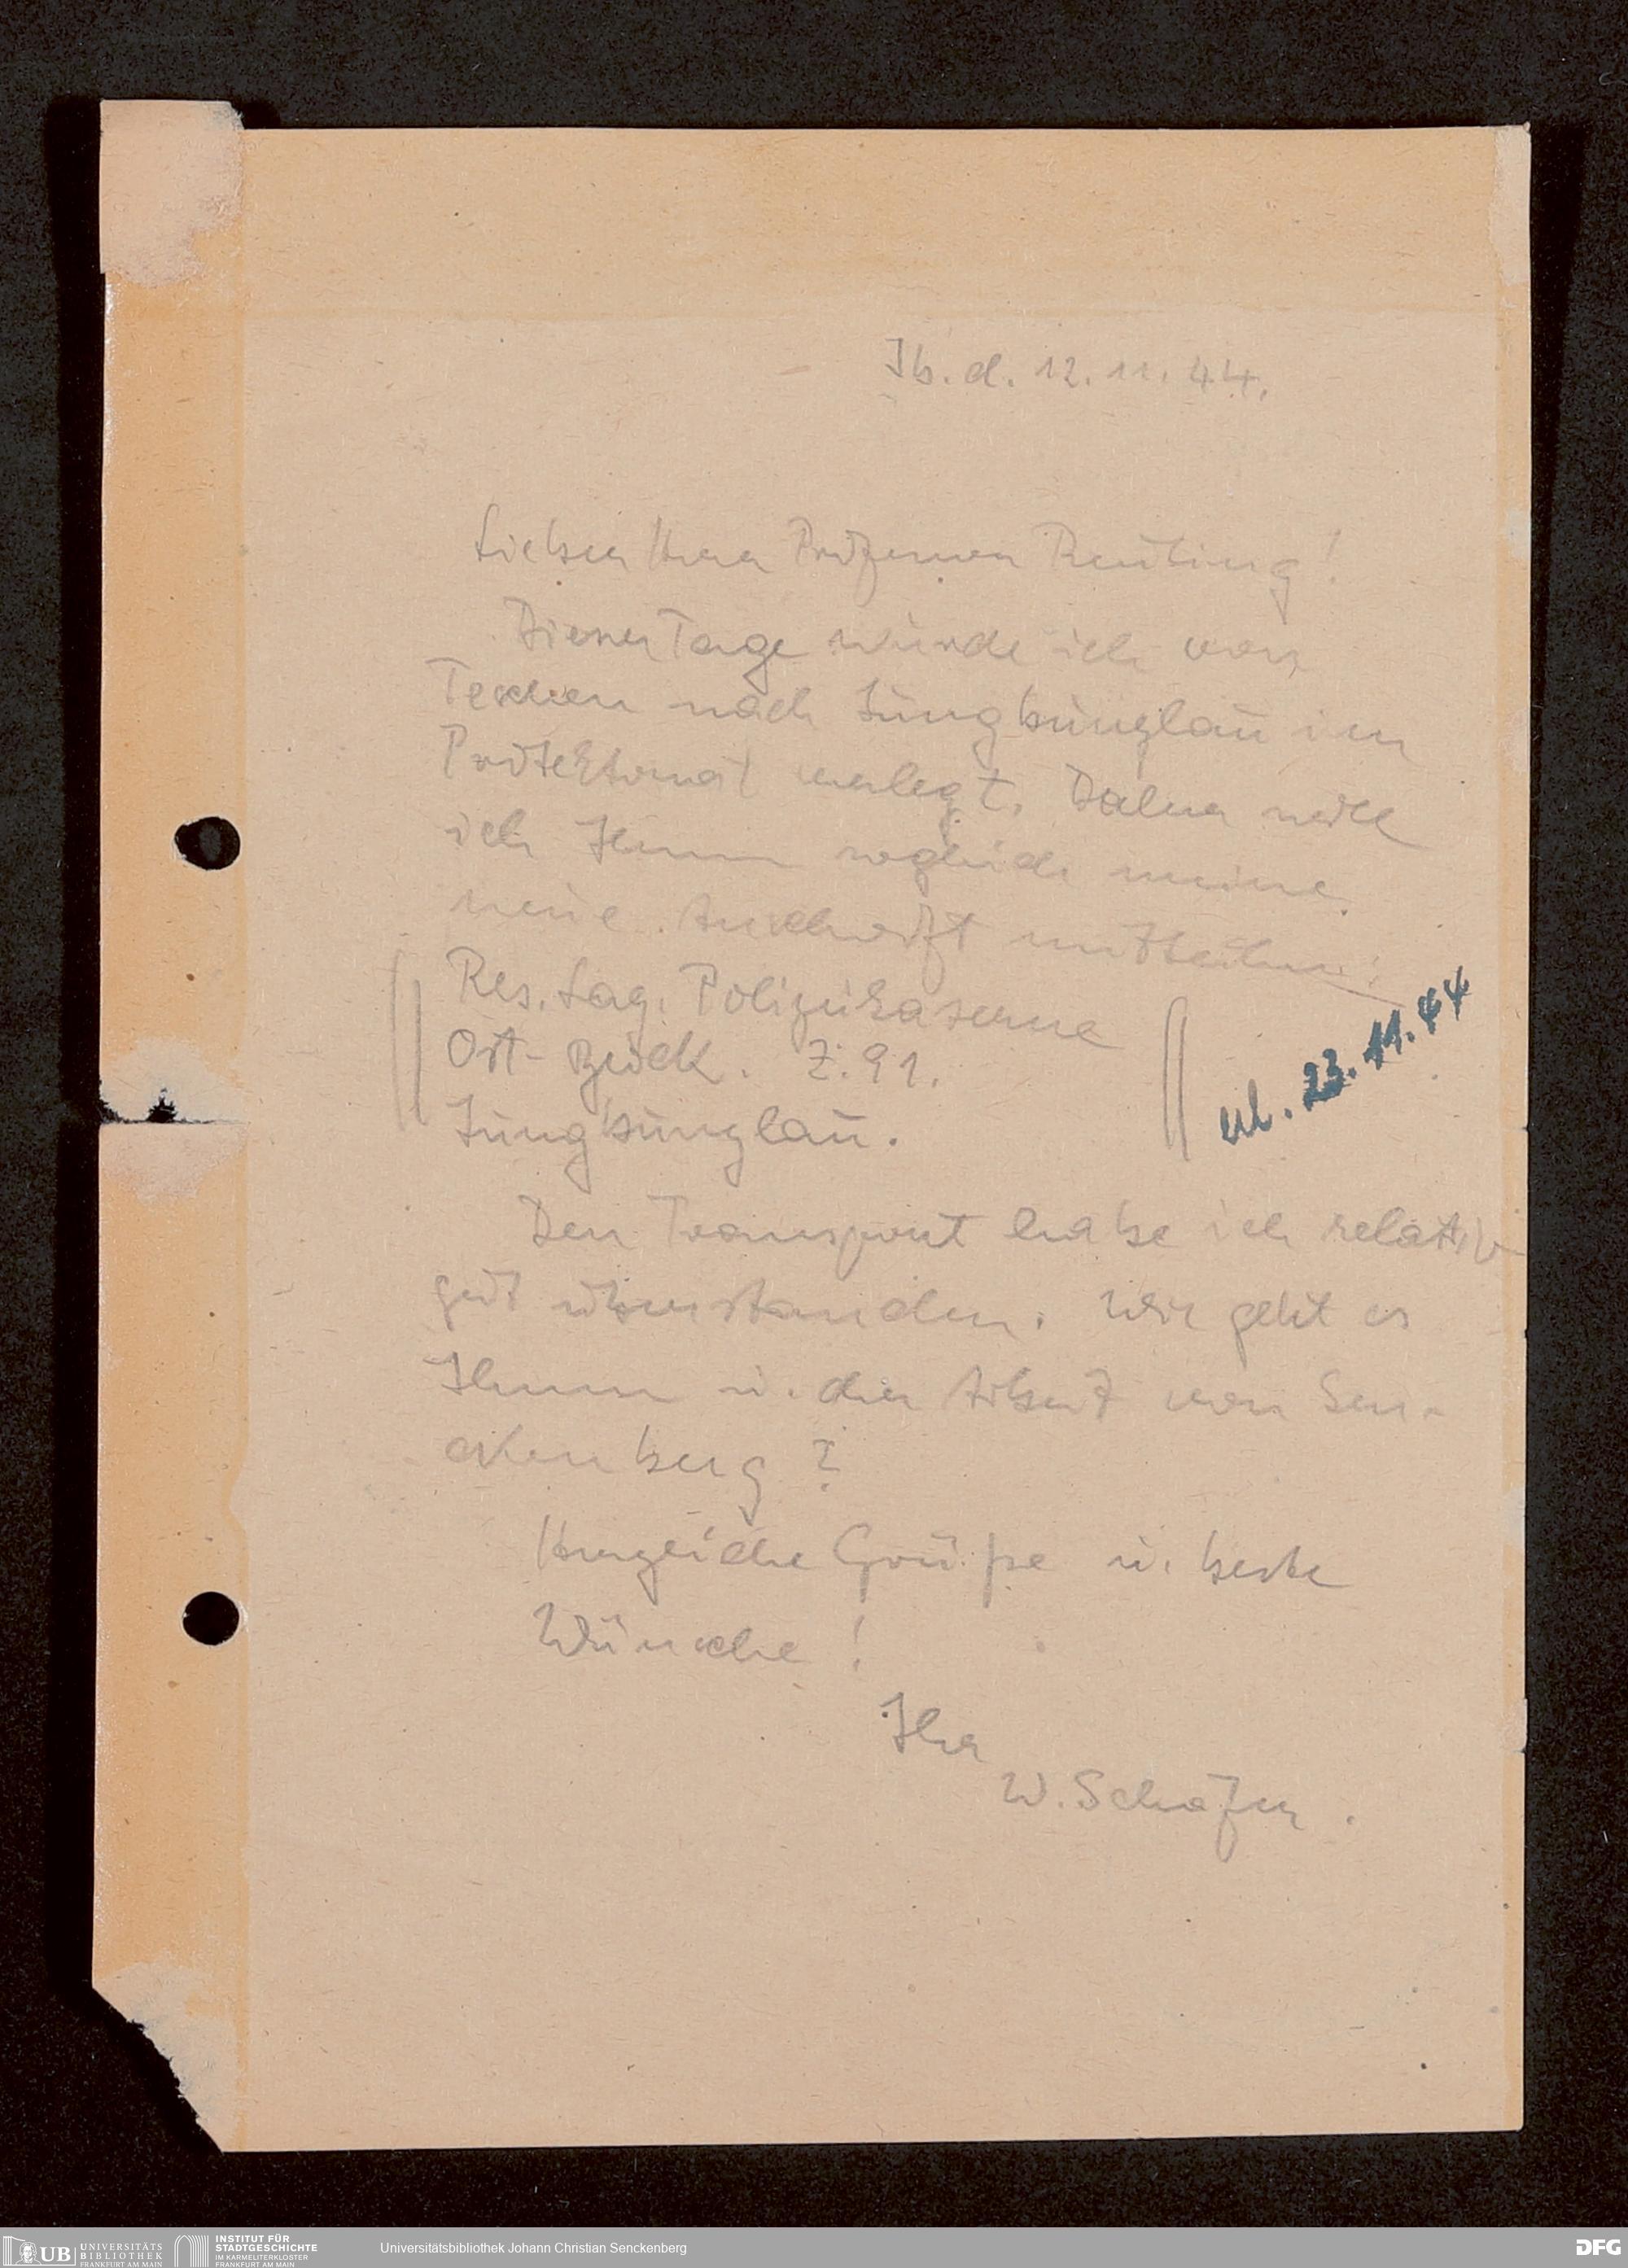 Jb. d. 12. 11. 44.
Lieber Herr Professor Reuling!
Dieser Tage wurde ich von
Teschen nach Jungbunzlau im
Protektorat verlegt. Daher will
ich Ihnen sogleich meine
neue Anschrift mitteilen:
Res. Laz. Polizeikaserne
Ort- Z. 91.
Jungbunzlau.
erl. 23. 11. 44
Den Transport habe ich relativ
gut überstanden. Wie geht es
Ihnen u. der Arbeit von Sen-
ckenberg?
Herzliche Grüße u. beste
Wünsche!
Ihr
W. Schäfer.
UB UNIVERSITÄTS
BIBLIOTHEK
FRANKFURT AM MAIN
INSTITUT FÜR
STADTGESCHICHTE
IM KARMELITERKLOSTER
FRANKFURT AM MAIN
Universitätsbibliothek Johann Christian Senckenberg
DFG